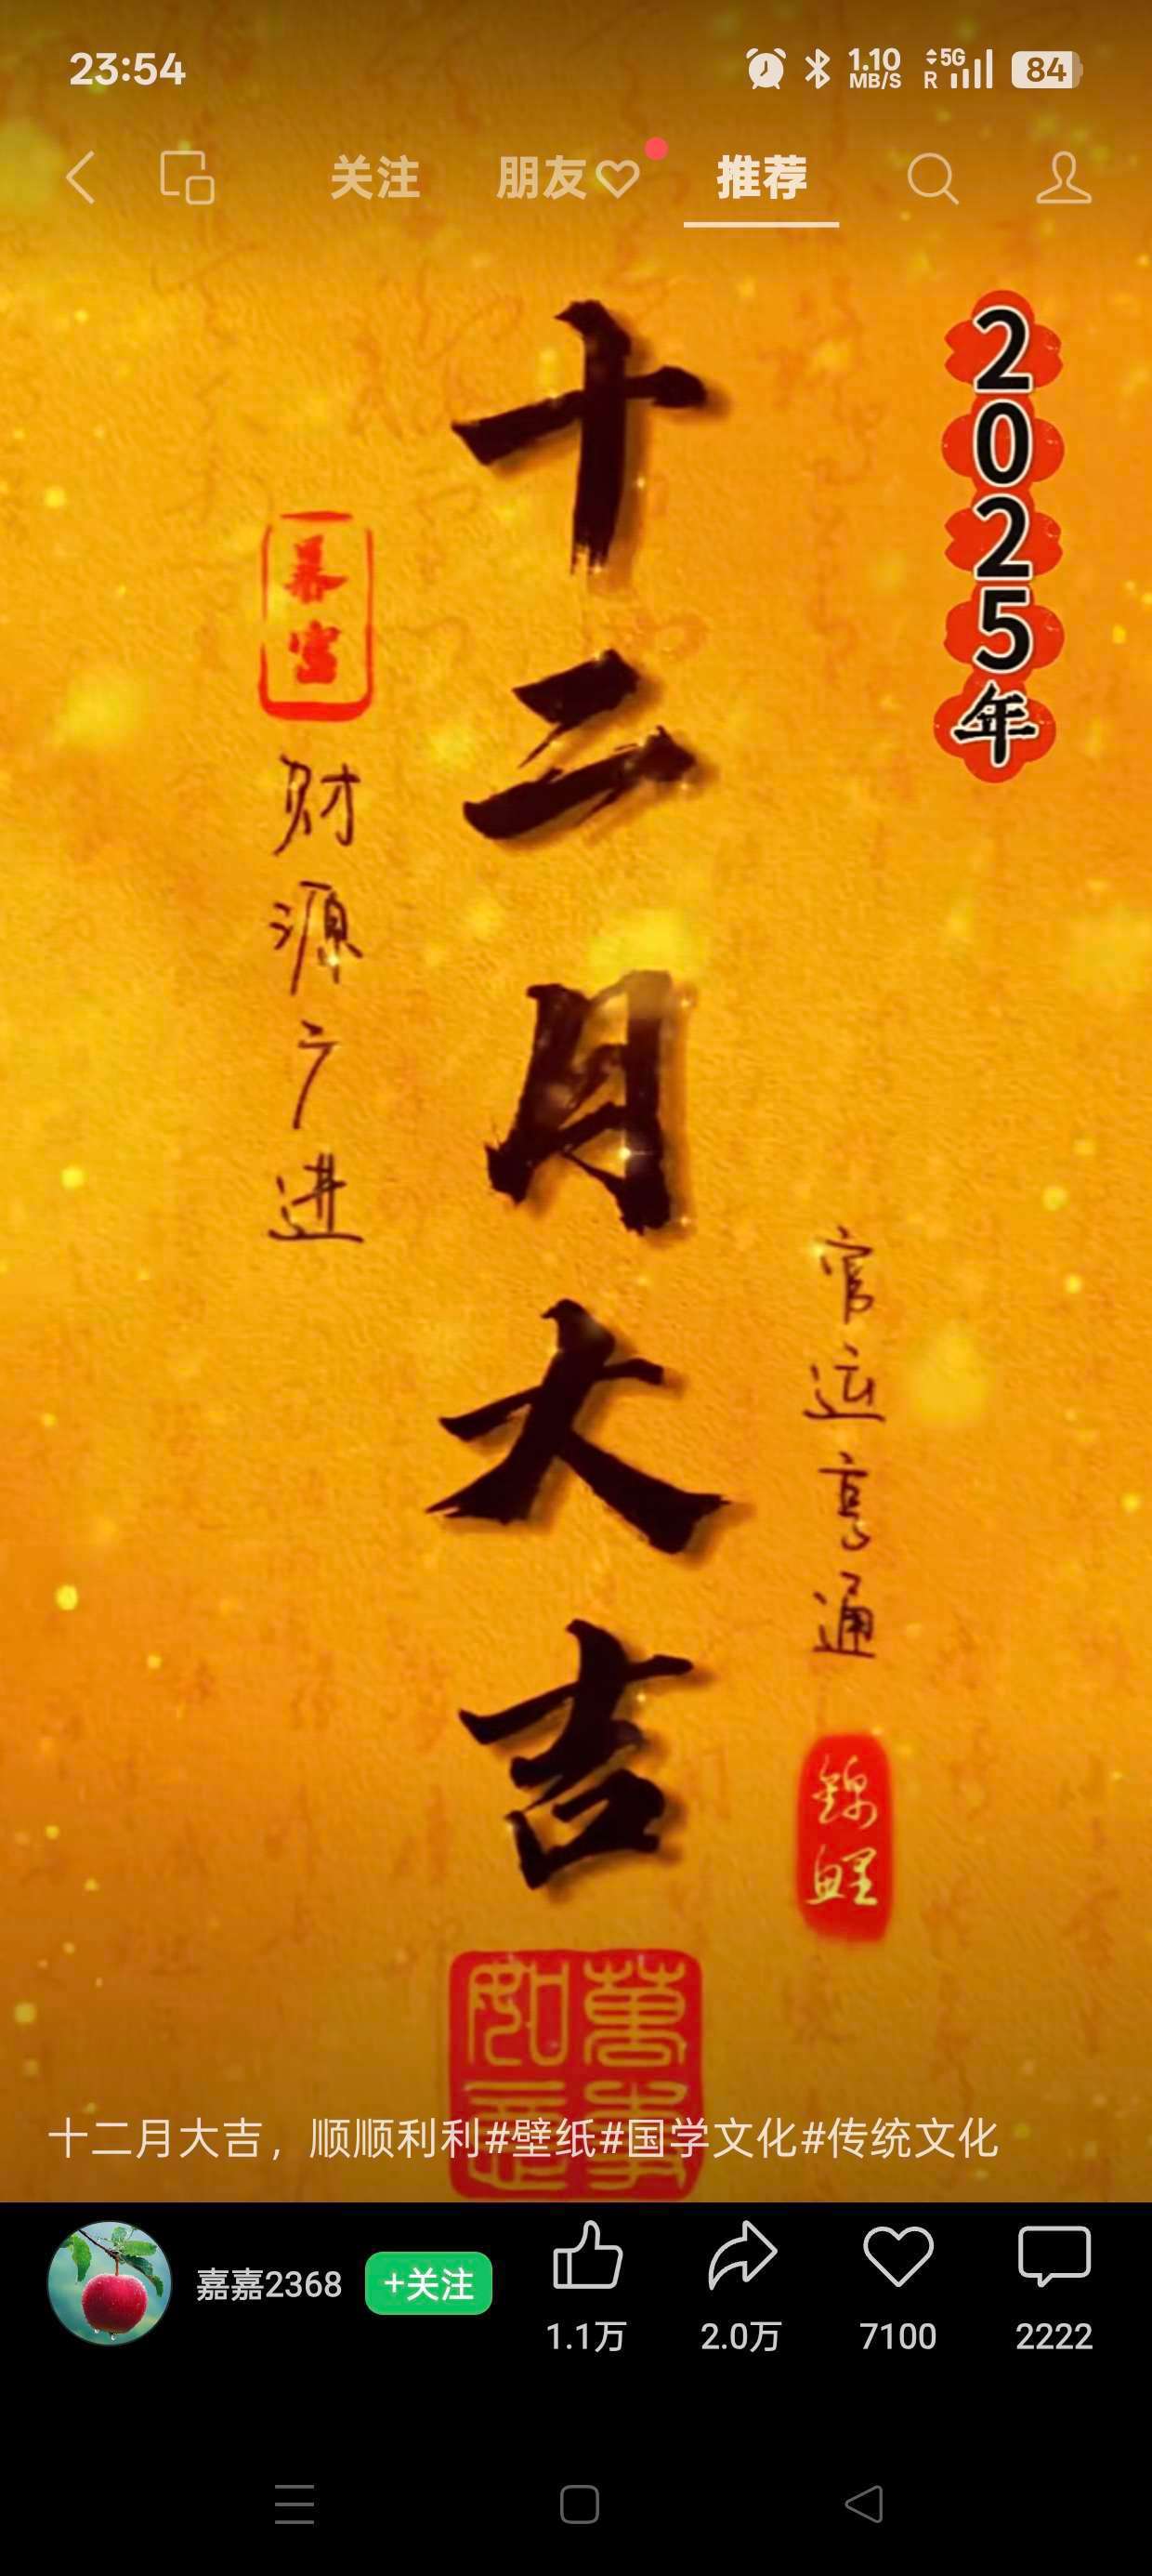 23:54
1.10
MB/S
5G
R
84
关注
朋友
推荐
2025年
十二月大吉
暴富
财源广进
官运亨通
錦鲤
萬事如意
十二月大吉，顺顺利利#壁纸#国学文化#传统文化
嘉嘉2368
+关注
1.1万
2.0万
7100
2222